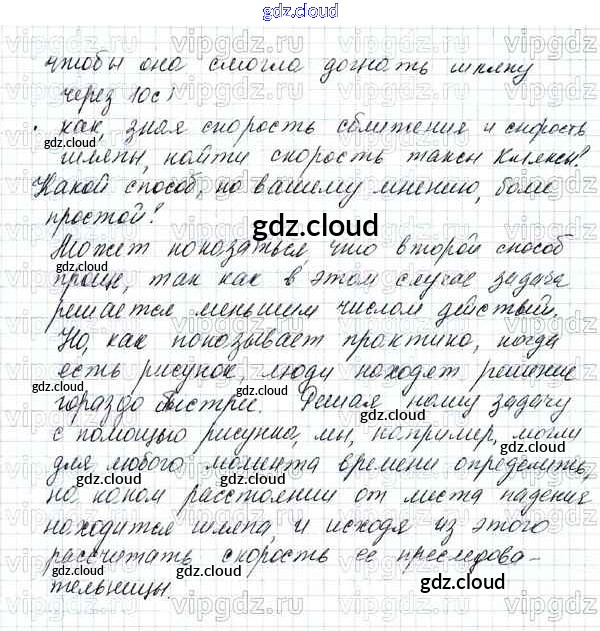 gdz.cloud
чтобы она смогла догнать шляпу
через 10с;
• как, зная скорость сближения и скорость
шляпы, найти скорость таксы Кляксы?
Какой способ, по вашему мнению, более
простой?
gdz.cloud
Может показаться, что второй способ
проще, так как в этом случае задача
решается меньшим числом действий.
Но, как показывает практика, когда
есть рисунок, люди находят решение
гораздо быстрее. Решая нашу задачу
с помощью рисунка, мы, например, могли
для любого момента времени определить,
на каком расстоянии от места падения
находится шляпа, и исходя из этого
рассчитать скорость её преследова-
тельницы.